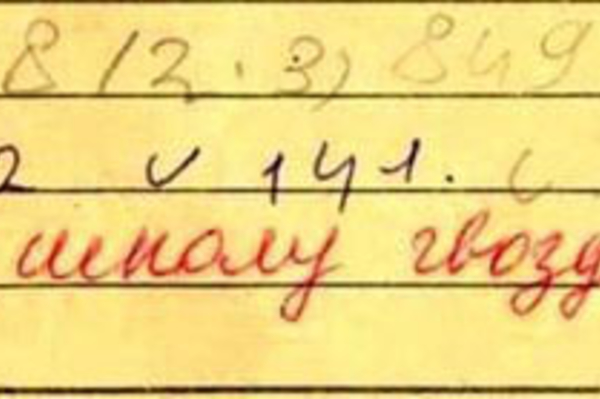 8 (2.3) 849
2 v 141.
школу гвозд